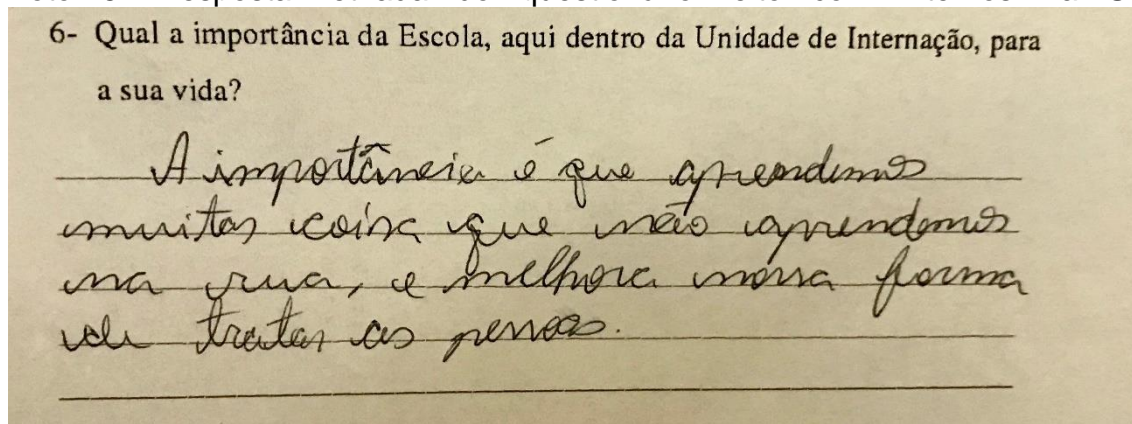 6- Qual a importância da Escola, aqui dentro da Unidade de Internação, para
a sua vida?
A importância é que aprendemos
muitas coisa que não aprendemos
na rua, e melhora nossa forma
de tratar as pessoas.